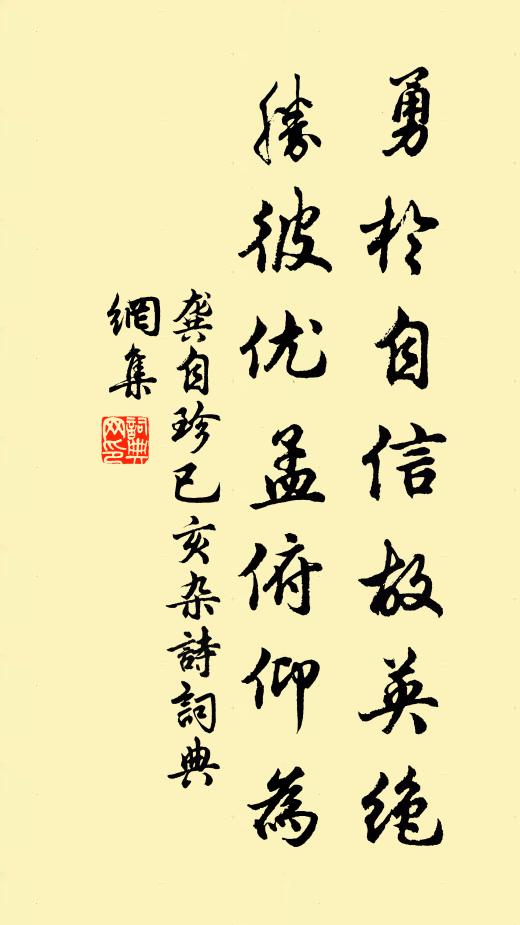 勇於自信故英绝
勝彼优孟俯仰為
龔自珍已亥杂詩詞典
網集
詞典
网印